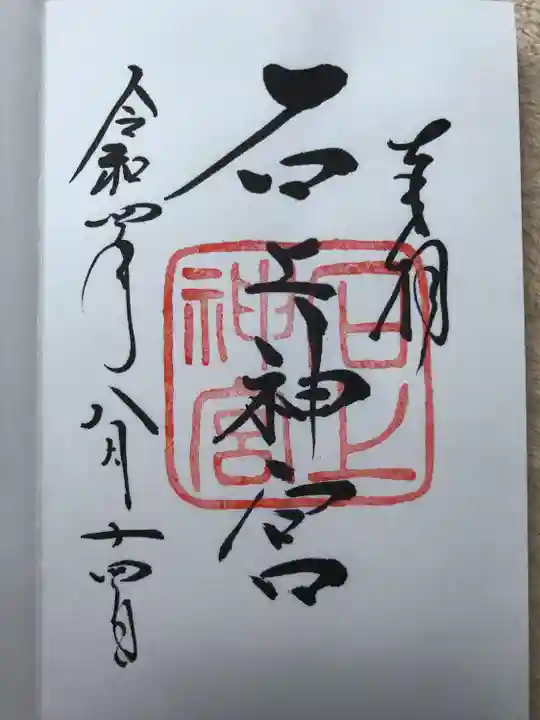 奉拝
石上神宮
石上
神宮
令和四年八月十四日